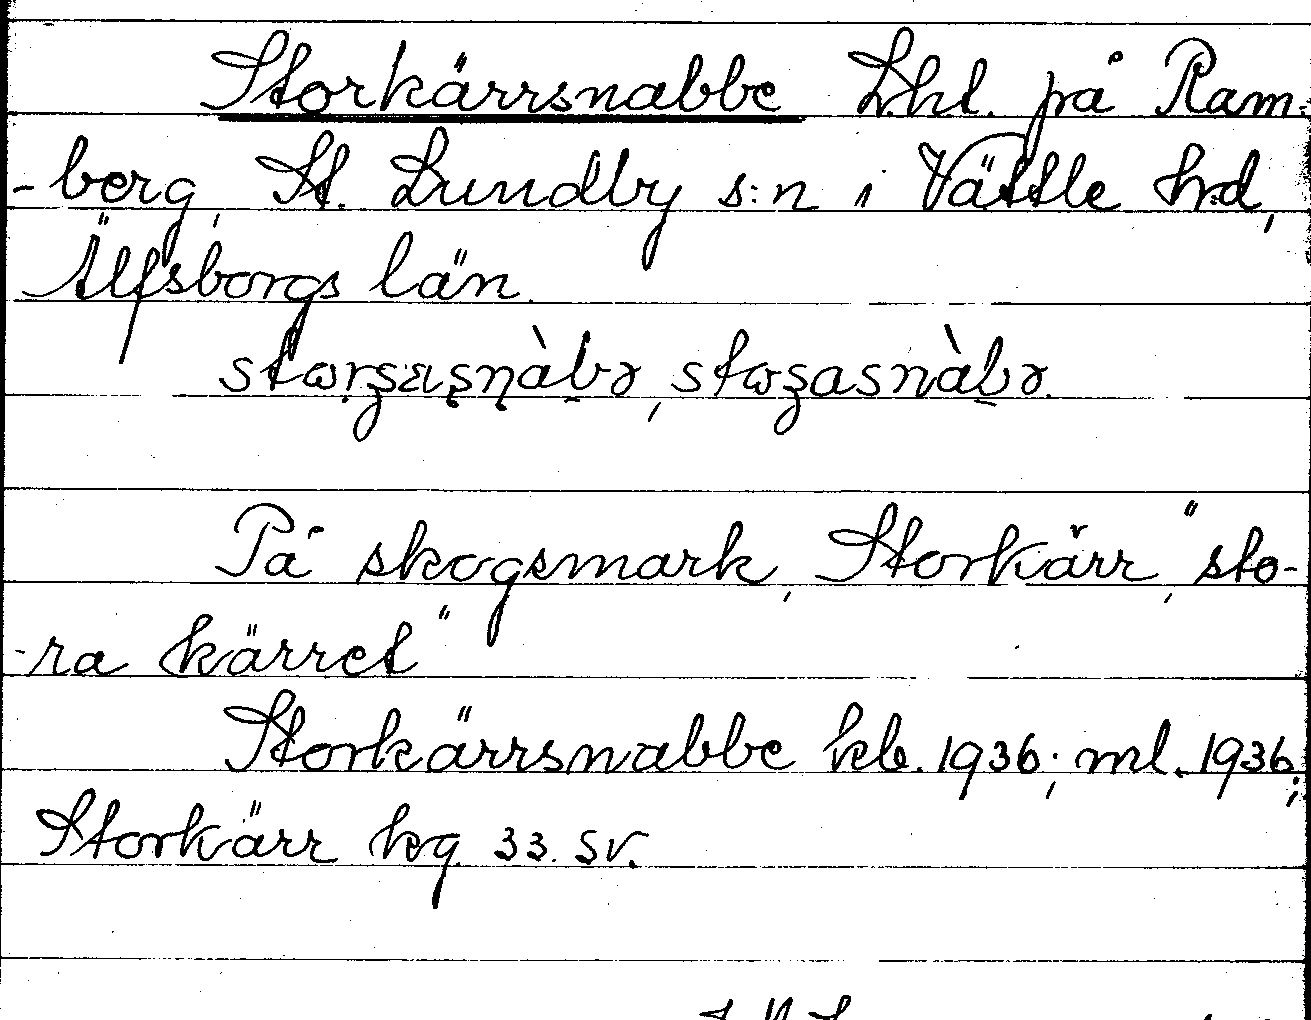 Storkärrsnabbe Lht. på Ram-
-berg, St. Lundby s:n i Vättle hrd,
Älfsborgs län.
På skogsmark, Storkärr, "sto-
-ra kärret"
Storkärrsnabbe kb. 1936; ml. 1936;
Storkärr kg. 33. sv.